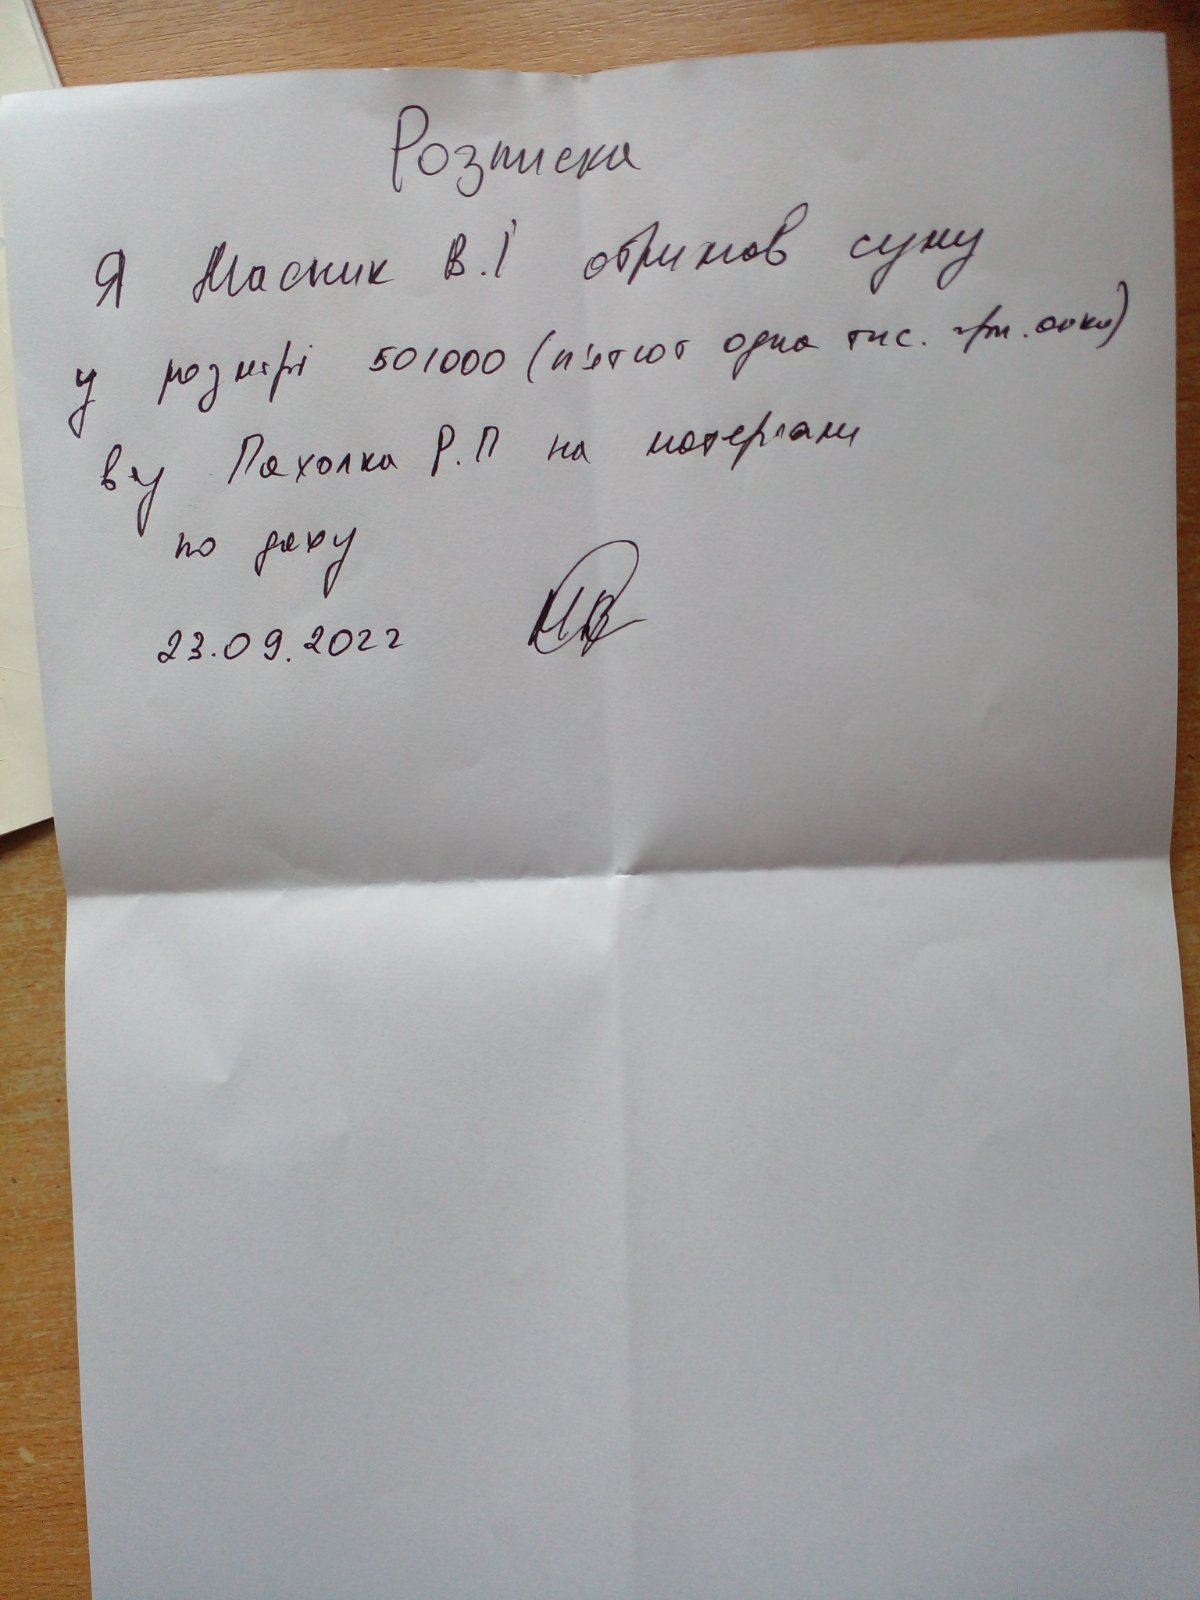 Розписка
Я Масник В.І обримав суму
у розмірі 501000 (п'ятсот одна тис. грн.
від Пахолка Р.П на матеріали
по даху
23.09.2022